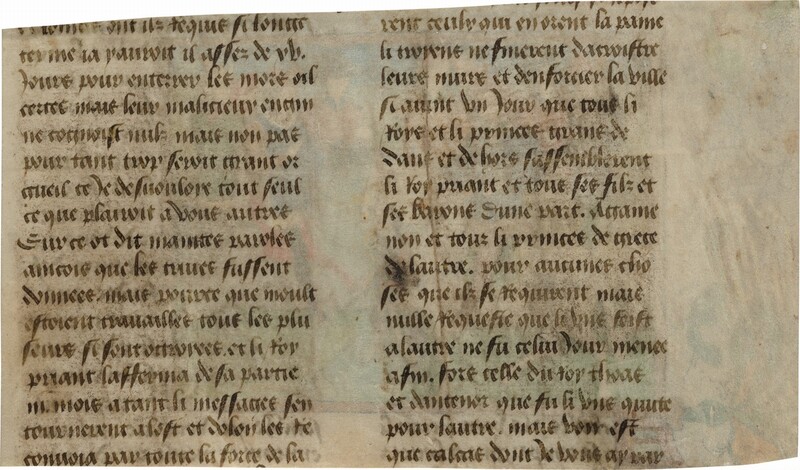 ont ilz requis si longue
terme ia y auroit il assez de xv.
Jours pour enterrer les mors oil
certes mais leur malicieux engin
ne cognoist nulz mais non pas
pour tant trop seroit grant or
gueil ce Je desuouloye tout seul
ce que plairoit a vous autres
Sur ce ot dit maintes paroles
aincois que les trieues fussent
donnees. mais pource que moult
estoient trauailles tous les plu
seurs si sont ottroyees. et li Roy
priant lafferma de sa partie
iii. mois a tant li messages sen
tournerent a lost et dolon les re
conuoia par toute la force de la
rent ceulx qui en orent la paine
li troyens ne finerent dacroistre
leurs murs et denforcier la ville
Si auint vn Jour que tous li
Roys et li princes tirans de
dans et dehors sassemblerent
li Roy priant et tous ses filz et
ses barons dune part. Agame
non et tour li princes de grece
de lautre. pour aucunes cho
ses que ilz se requirent mais
nulle requeste que li vns feist
a lautre ne fu celui Jour menee
a fin. fors celle du Roy thoas
et danthenor que fu li vns quitte
pour lautre. mais voir est
que calcas dont Je vous ay par